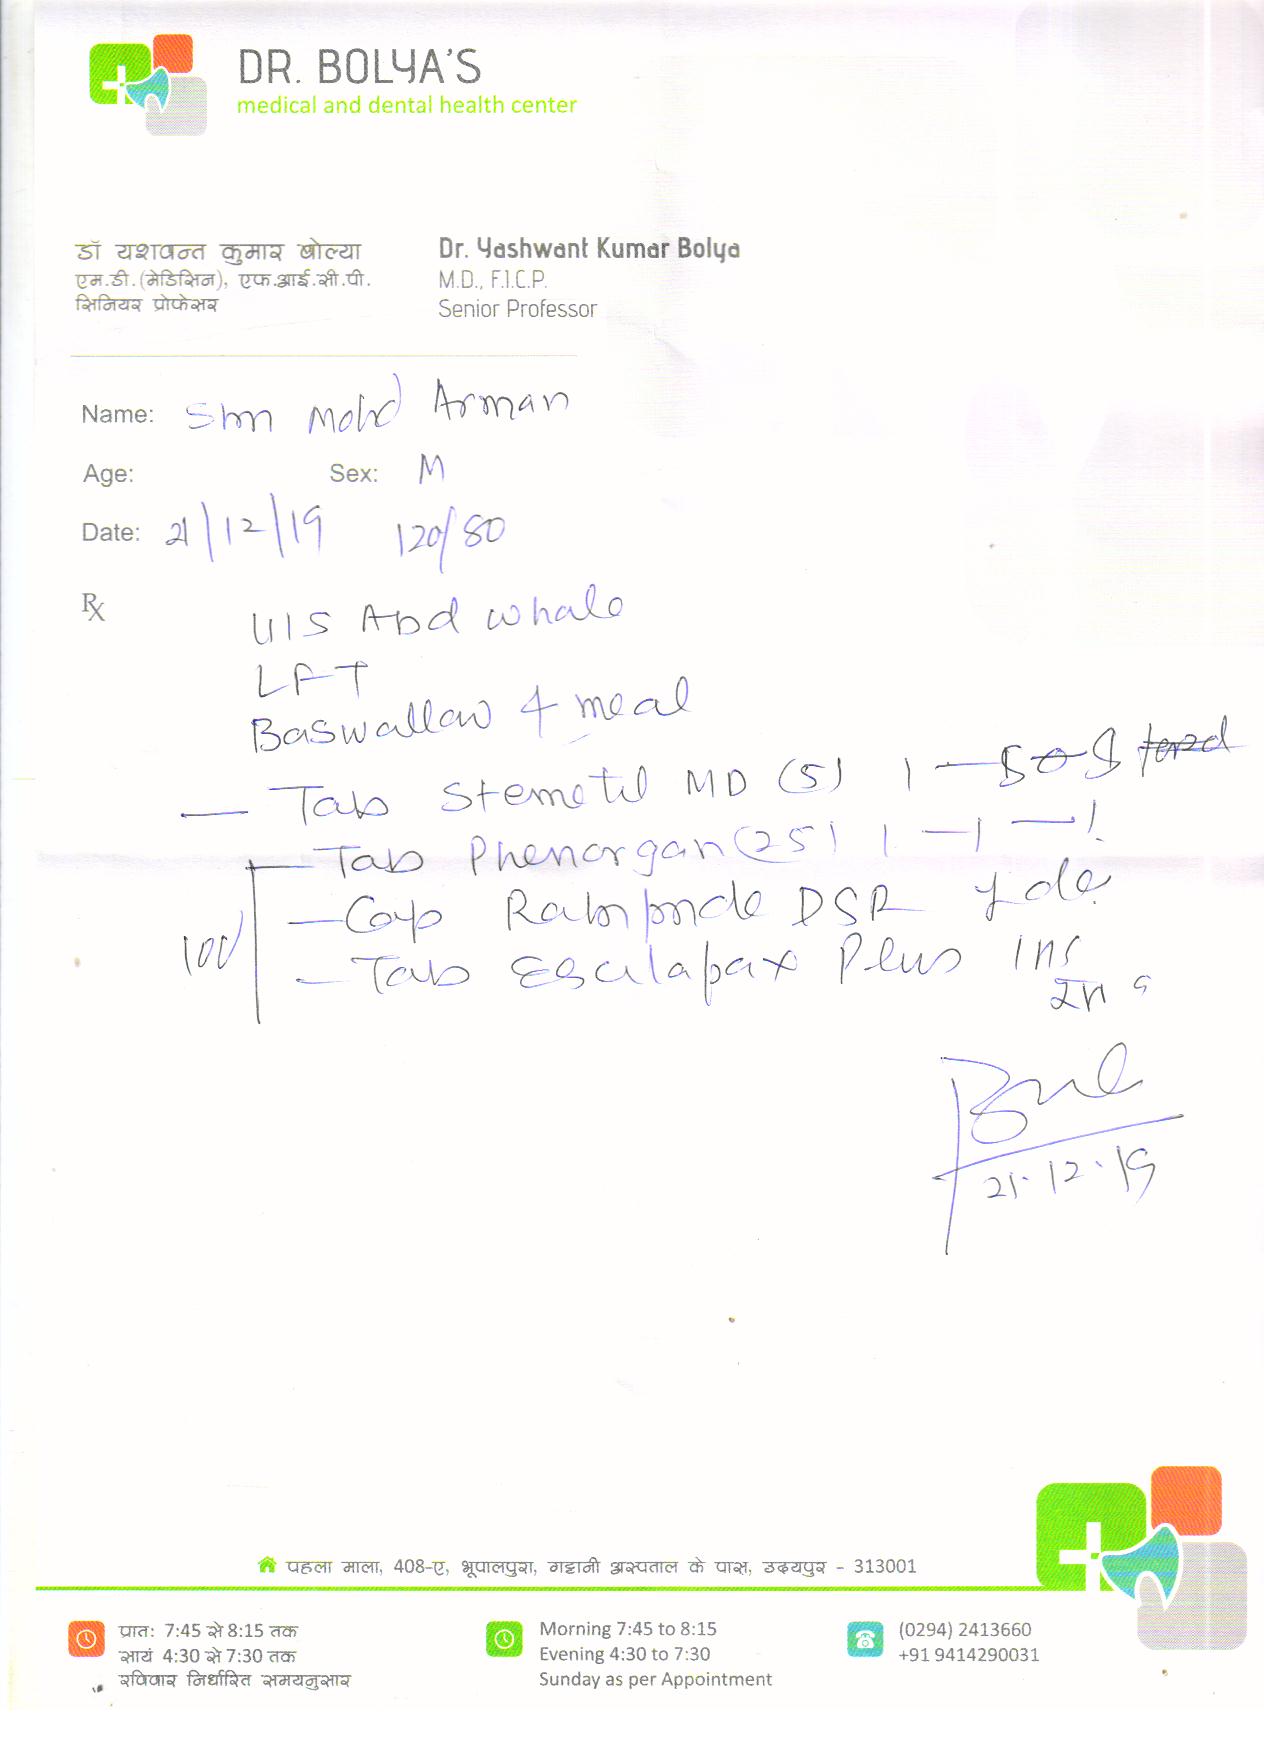 DR. BOLYA'S
medical and dental health center
डॉ यशवन्त कुमार बोल्या
एम.डी.(मेडिसिन), एफ.आई.सी.पी.
सिनियर प्रोफेसर
Dr. Yashwant Kumar Bolya
M.D., F.I.C.P.
Senior Professor
Name: Shri Mohd Arman
Age: Sex: M
Date: 21/12/19 120/80
Rx
U/S Abd whole
LFT
Ba swallow & meal
— Tab Stemetil MD (5) 1 — SOS
— Tab Phenorgan (25) 1 — 1 — 1
— Cap DSR
— Tab Plus
10d
21.12.19
पहला माला, 408-ए, भूपालपुरा, गट्टानी अस्पताल के पास, उदयपुर - 313001
प्रात: 7:45 से 8:15 तक
सायं 4:30 से 7:30 तक
रविवार निर्धारित समयनुसार
Morning 7:45 to 8:15
Evening 4:30 to 7:30
Sunday as per Appointment
(0294) 2413660
+91 9414290031